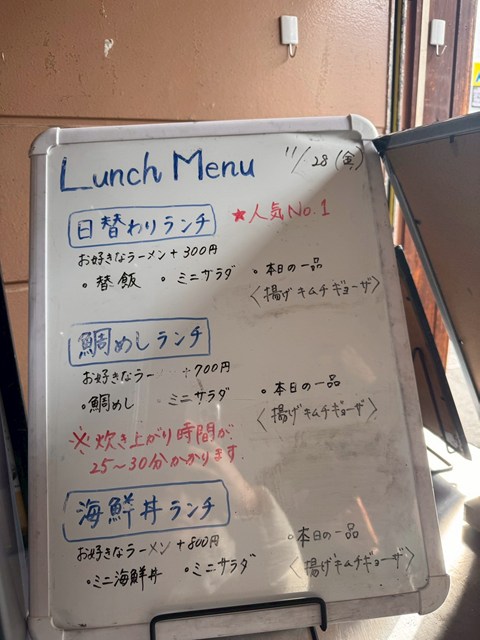 Lunch Menu
11/28(金)
日替わりランチ
★人気No.1
お好きなラーメン+300円
・替飯 ・ミニサラダ ・本日の一品
〈揚げキムチギョーザ〉
鯛めしランチ
お好きなラー +700円
・鯛めし ・ミニサラダ ・本日の一品
〈揚げキムチギョーザ〉
※炊き上がり時間が
25〜30分かかります
海鮮丼ランチ
お好きなラーメン+800円
・ミニ海鮮丼 ・ミニサラダ ・本日の一品
〈揚げキムチギョーザ〉